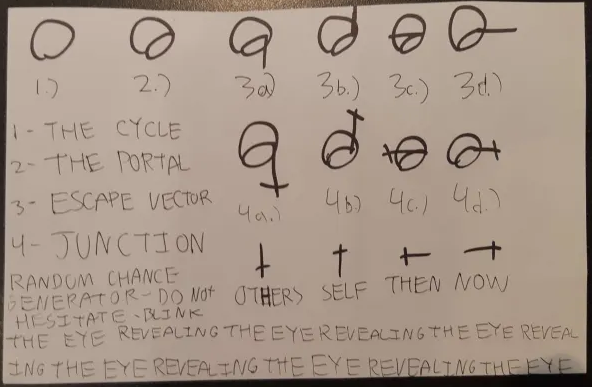 1.) 2.) 3a) 3b.) 3c.) 3d.)
1- THE CYCLE
2- THE PORTAL
3- ESCAPE VECTOR
4a.) 4b) 4c.) 4d.)
4- JUNCTION
OTHERS SELF THEN NOW
RANDOM CHANCE
GENERATOR- DO NOT
HESITATE - BLINK
THE EYE REVEALING THE EYE REVEALING THE EYE REVEAL
ING THE EYE REVEALING THE EYE REVEALING THE EYE